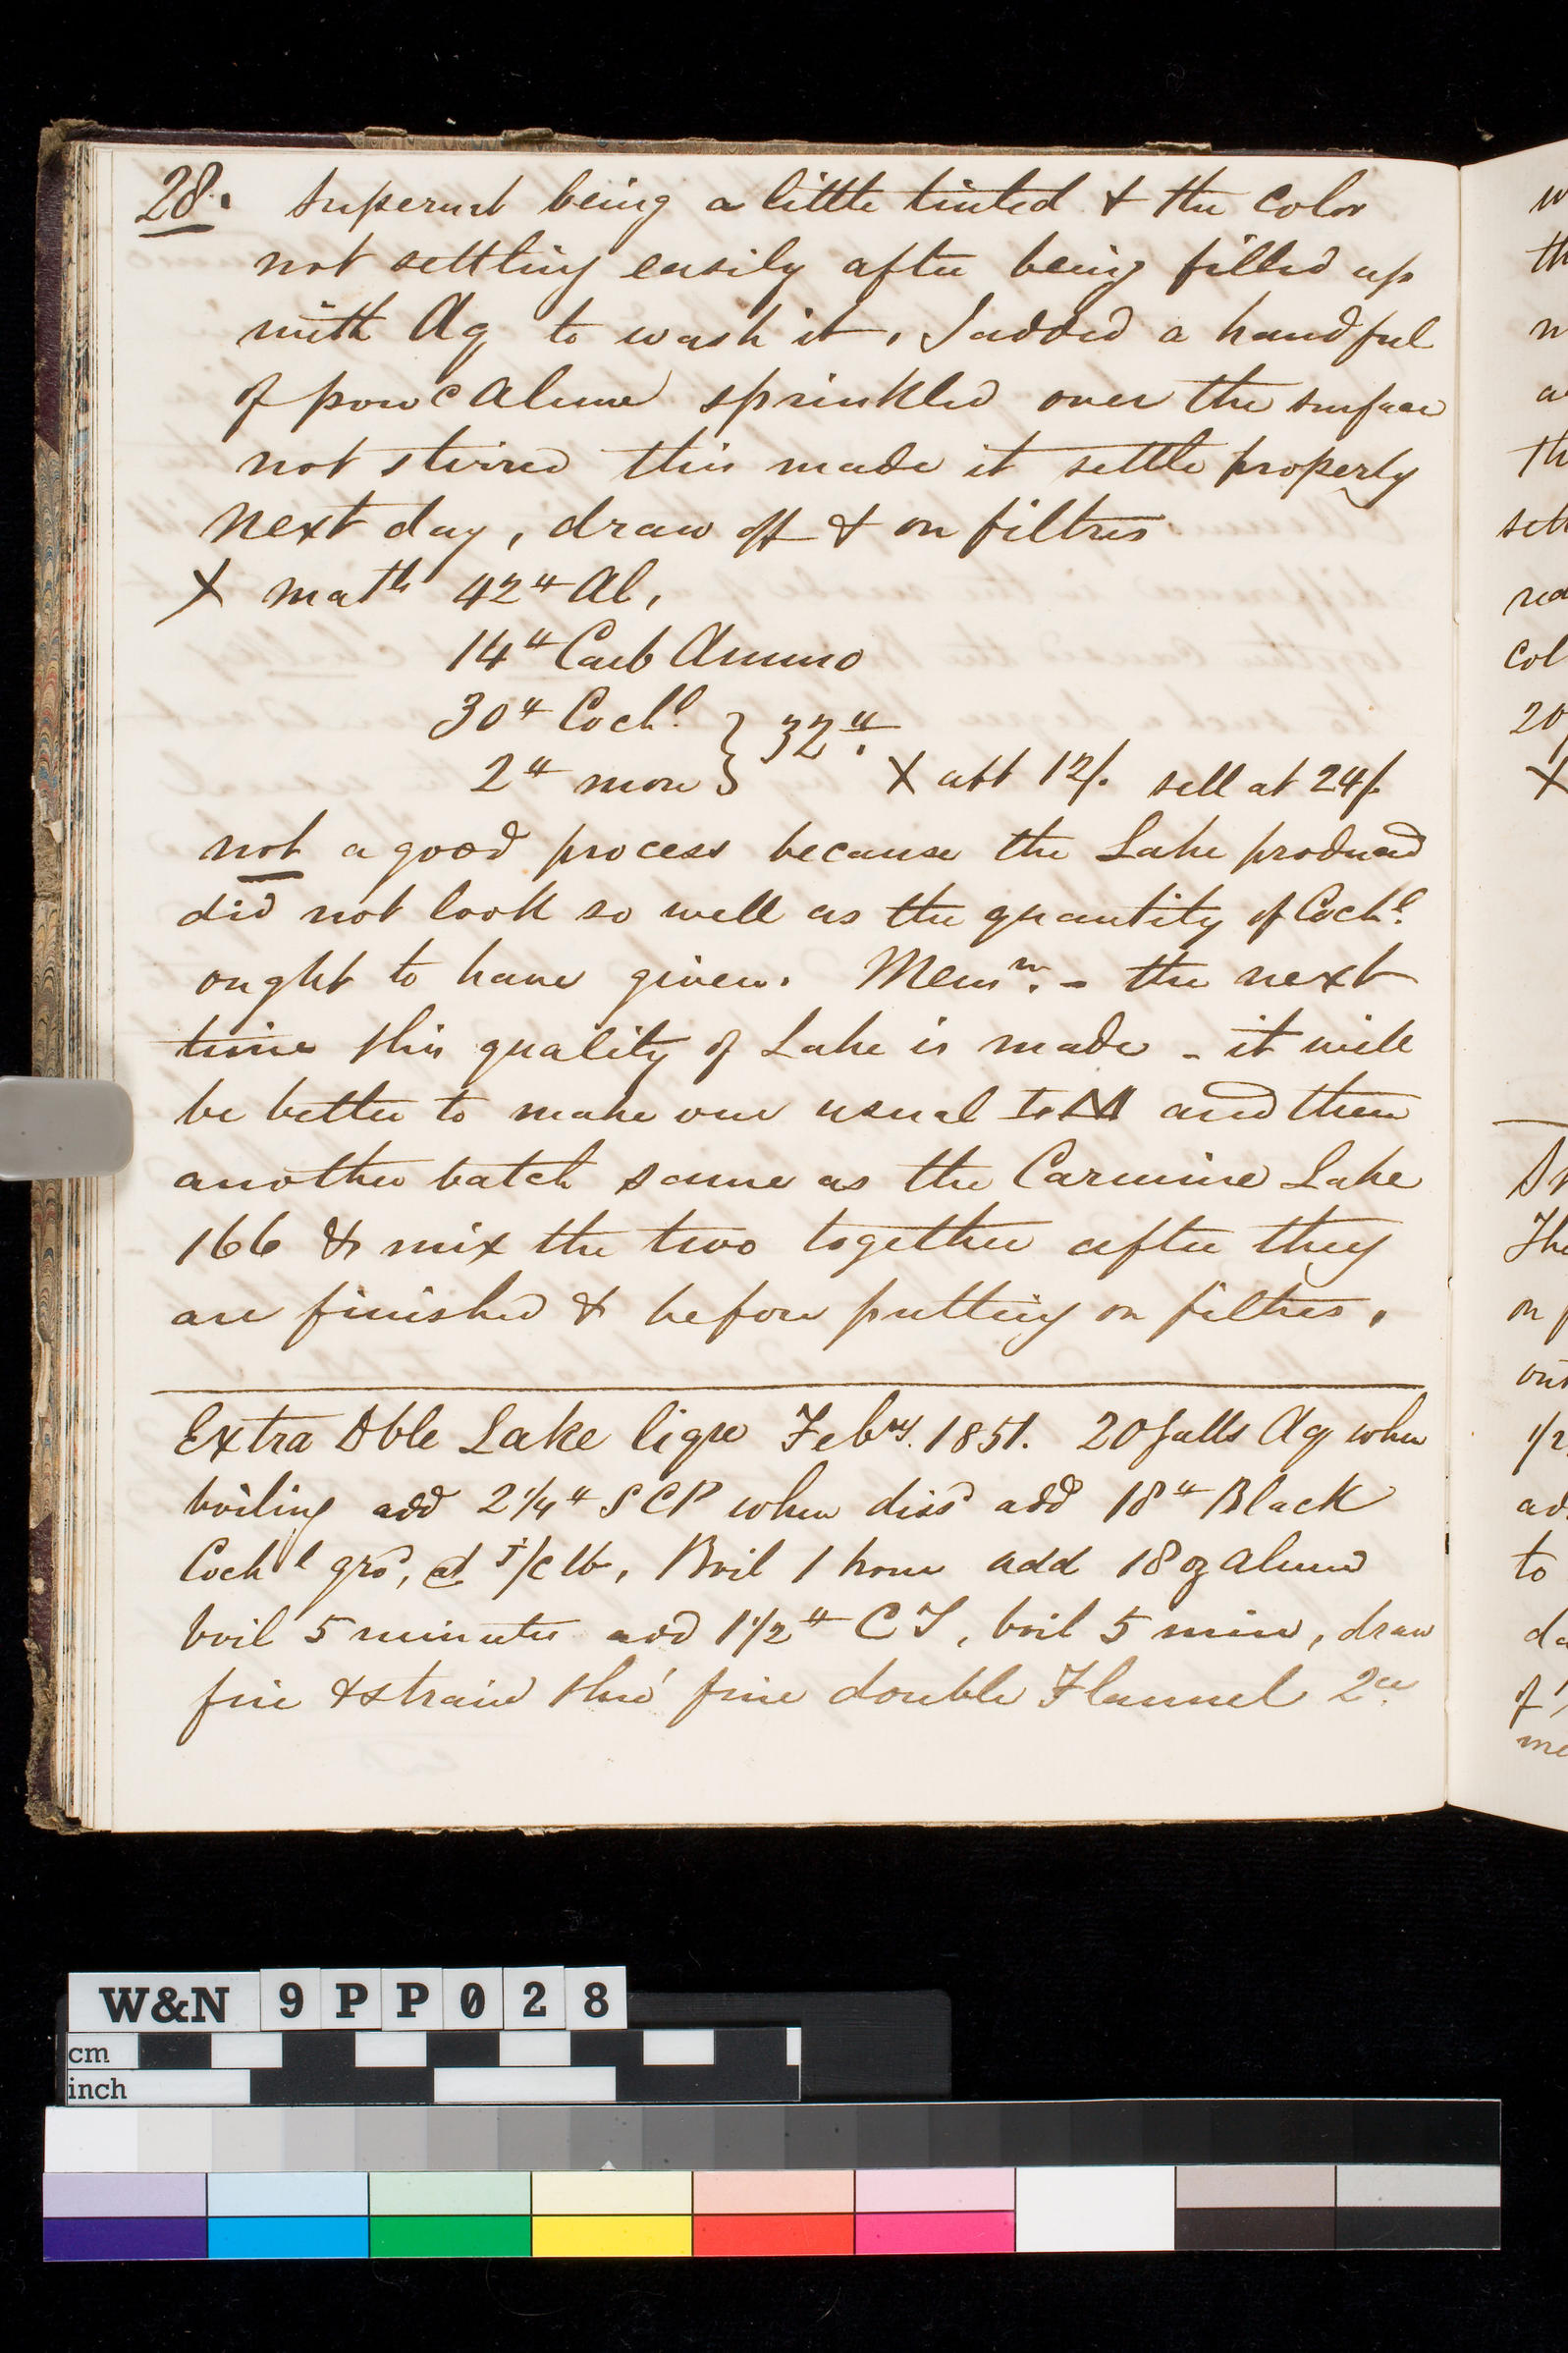 28. Supernt being a little tinted & the Color
not settling easily after being filled up
with Aq to wash it, I added a handful
of powd Alum sprinkled over the surface
not stirred this made it settle properly
next day, draw off & on filtres
X matls 42 " Al,
14 " Carb Ammo
30 " Cochl
} 32 "
2 " more
X abt 12/. sell at 24/.
not a good process because the Lake produced
did not look so well as the quantity of Cochl
ought to have given. Memm. - the next
time this quality of Lake is made - it will
be better to make our usual and then
another batch same as the Carmine Lake
166 & mix the two together after they
are finished & before putting on filtres.
Extra Dble Lake liqu Febry. 1851. 20 galls Aq when
boiling add 2 1/4 " SCP when dissd add 18 " Black
Cochl grd, at lb, Boil 1 hour add 18 oz Alum
boil 5 minutes add 1 1/2 " CT, boil 5 min, draw
fire & strain thro' fine double Flannel 2
w
th
n
a
Th
sett
red
Col
20
X
Th
on
out
1/2
ad
to
da
of
me
W&N 9PP028
cm
inch